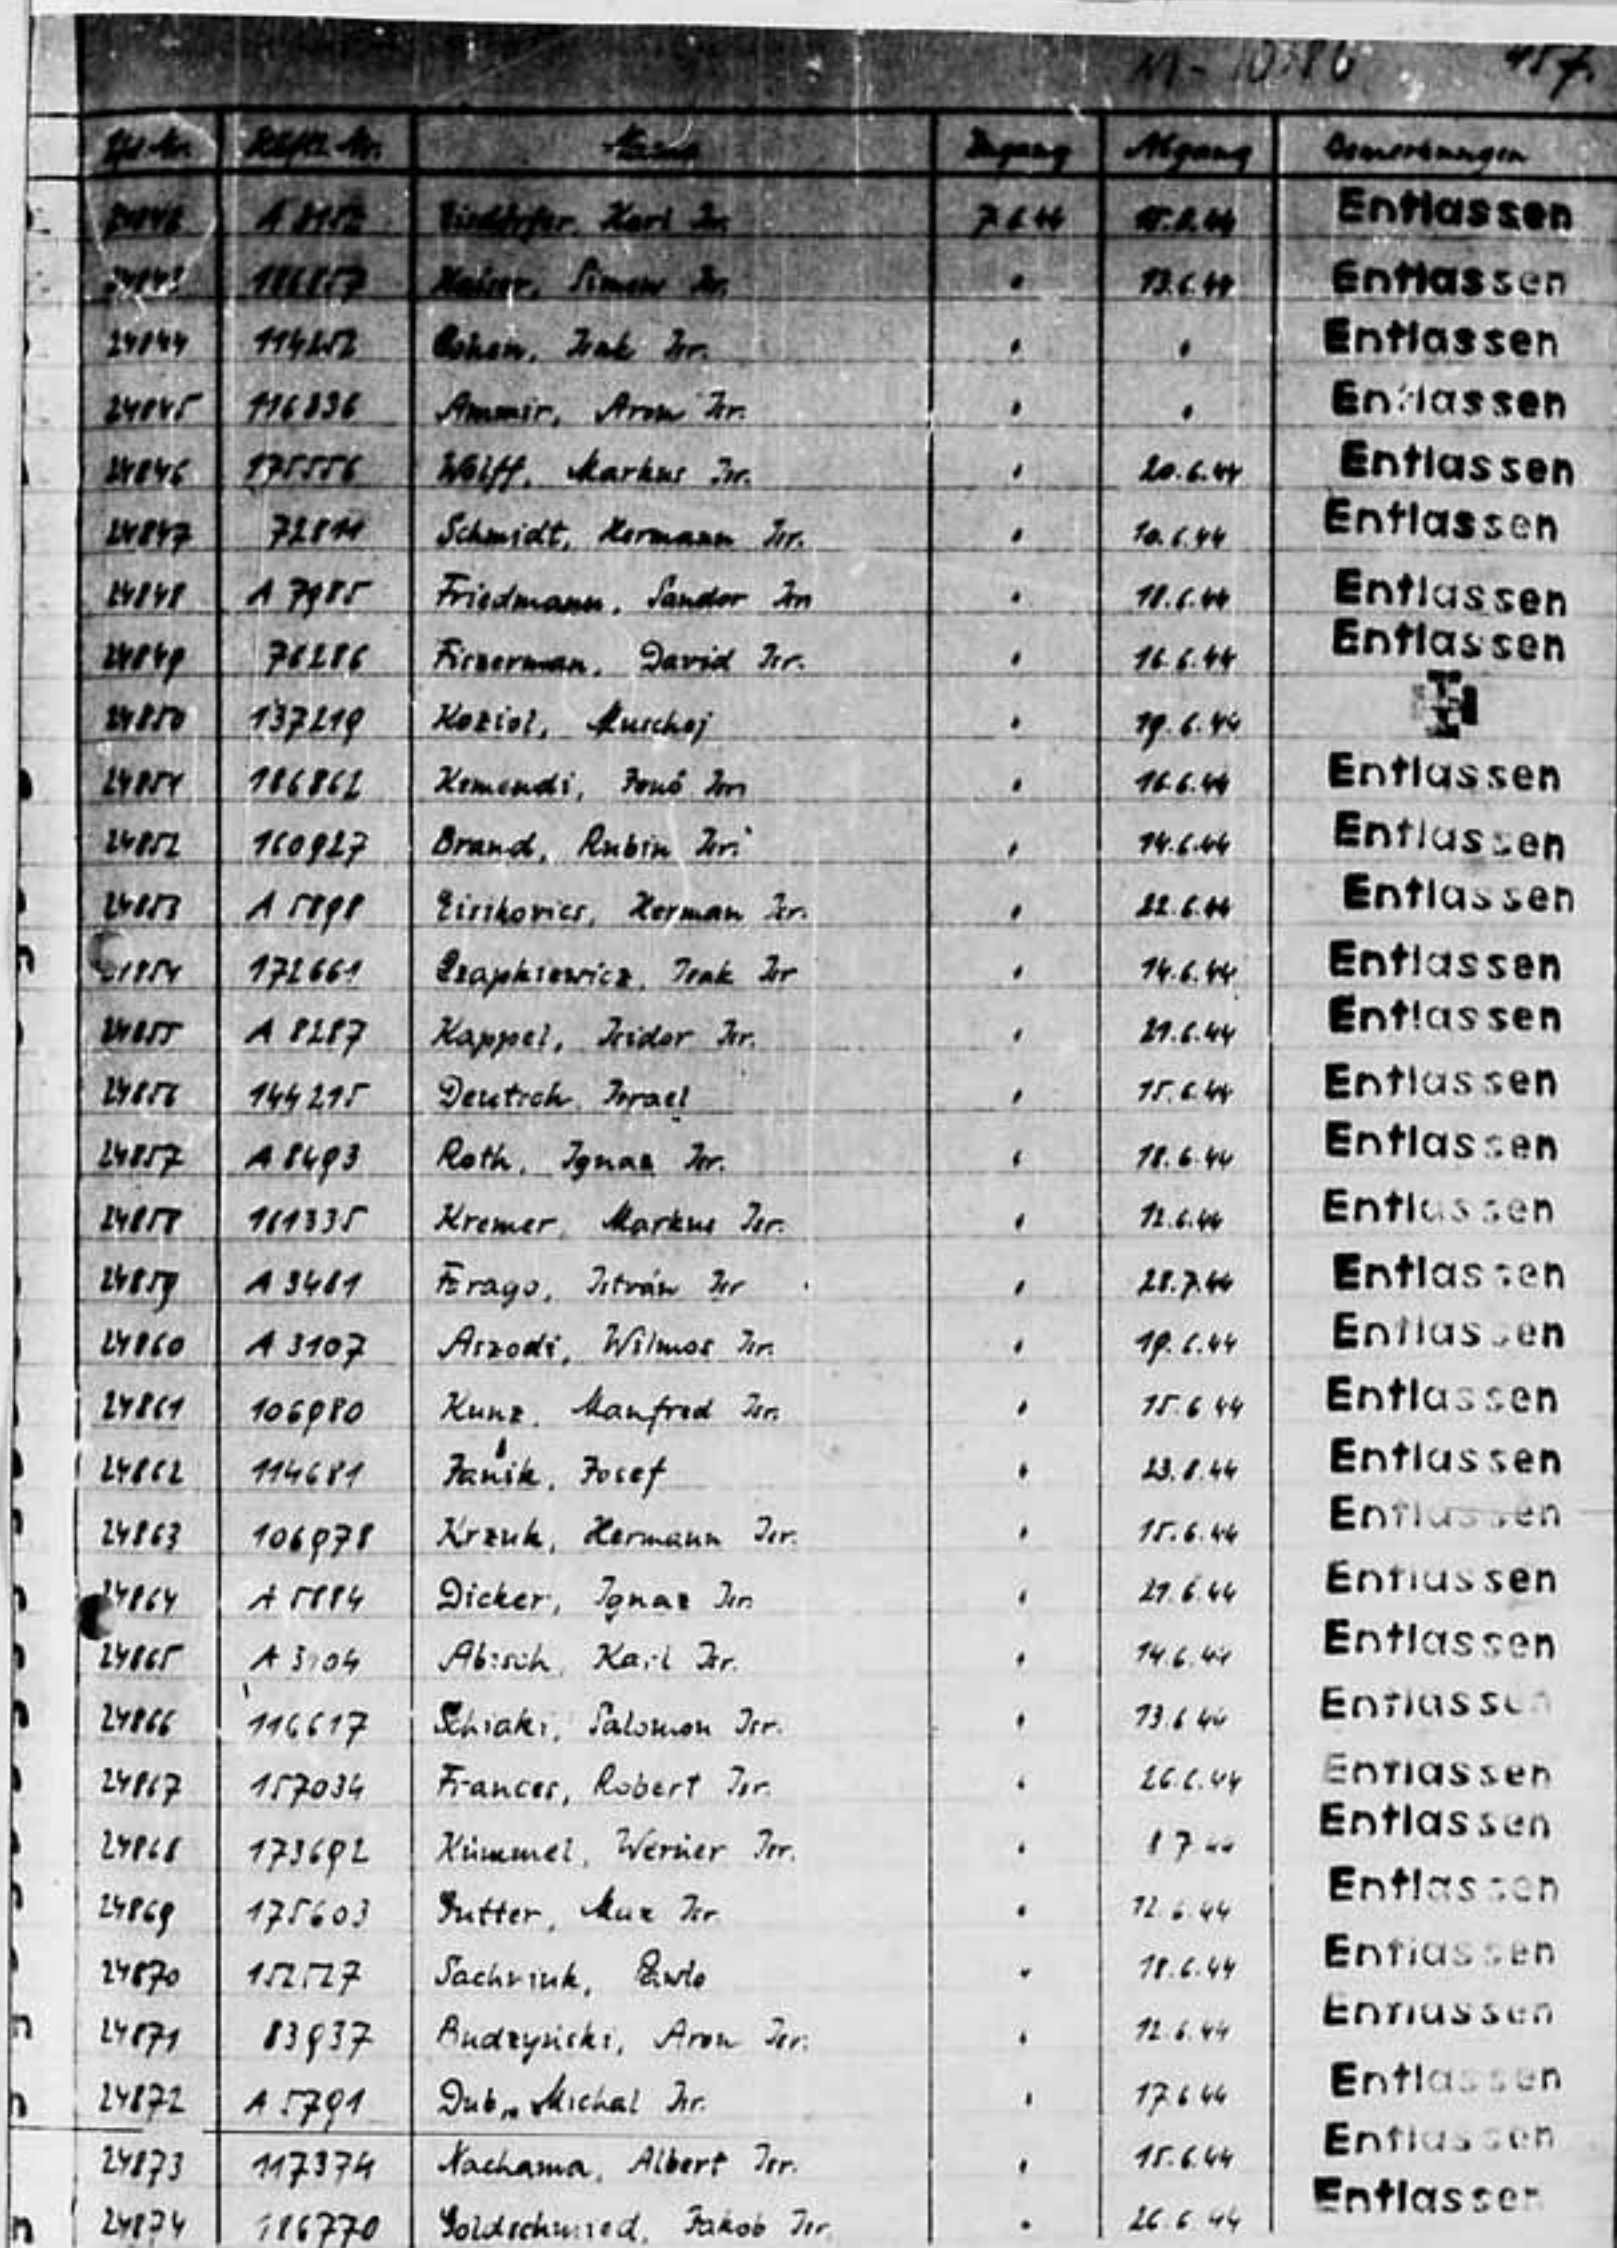 Lfd. Nr. Häftl. Nr. Name Zugang Abgang Bemerkungen
Karl Isr. 7.6.44 Entlassen
186857 Kaiser, Simon Isr. " 13.6.44 Entlassen
24844 114252 Cohen, Isak Isr. " " Entlassen
24845 116336 Ammir, Aron Isr. " " Entlassen
24846 175556 Wolff, Markus Isr. " 20.6.44 Entlassen
24847 72811 Schmidt, Hermann Isr. " 10.6.44 Entlassen
24848 A 7985 Friedmann, Sandor Isr. " 18.6.44 Entlassen
24849 76286 Fiszerman, David Isr. " 16.6.44 Entlassen
24850 137219 Koziol, " 19.6.44
24851 186862 Kemendi, Jenö Isr. " 16.6.44 Entlassen
24852 160927 Brand, Rubin Isr. " 14.6.44 Entlassen
24853 A 5898 Eisikovics, Herman Isr. " 22.6.44 Entlassen
24854 172661 Czapkiewicz, Isak Isr " 14.6.44 Entlassen
24855 A 8287 Kappel, Isidor Isr. " 21.6.44 Entlassen
24856 144215 Deutsch, Israel " 15.6.44 Entlassen
24857 A 8493 Roth, Ignaz Isr. " 18.6.44 Entlassen
24858 161335 Kremer, Markus Isr. " 12.6.44 Entlassen
24859 A 3481 Farago, István Isr " 28.7.44 Entlassen
24860 A 3107 Aszodi, Wilmos Isr. " 19.6.44 Entlassen
24861 106980 Kunz, Manfred Isr. " 15.6.44 Entlassen
24862 114681 Janik, Josef " 23.8.44 Entlassen
24863 106978 Krzuk, Hermann Isr. " 15.6.44 Entlassen
24864 A 5884 Dicker, Ignaz Isr. " 21.6.44 Entlassen
24865 A 3104 Abisch, Karl Isr. " 14.6.44 Entlassen
24866 116617 Schiaki, Salomon Isr. " 13.6.44 Entlassen
24867 157034 Frances, Robert Isr. " 26.6.44 Entlassen
24868 173692 Kümmel, Werner Isr. " 8.7.44 Entlassen
24869 175603 Gutter, Max Isr. " 12.6.44 Entlassen
24870 152527 " 18.6.44 Entlassen
24871 83937 Budzyński, Aron Isr. " 12.6.44 Entlassen
24872 A 5791 Dub, Michal Isr. " 17.6.44 Entlassen
24873 117374 Nachama, Albert Isr. " 15.6.44 Entlassen
24874 186770 Goldschmied, Jakob Isr. " 26.6.44 Entlassen